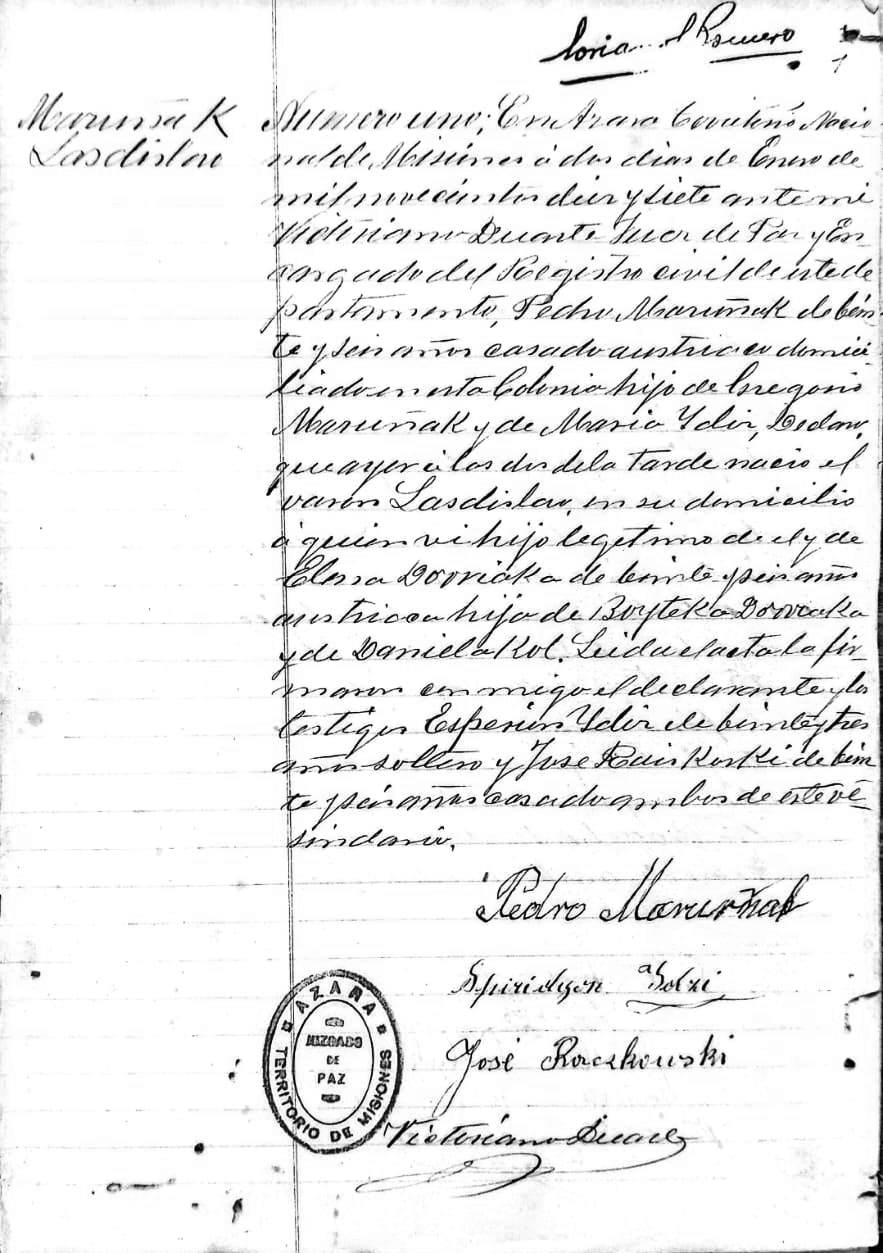 Soria... l Romero
1
Maruñak
Lasdislao
Numero uno; En Azara Territorio Nacio
nal de Misiones á dos dias de Enero de
mil novecientos diez y siete ante mi
Victoriano Duarte Juez de Paz y En
cargado del Registro civil de este de
partamento, Pedro Maruñak de bein
te y seis años casado austriaco domici
liado en esta Colonia hijo de Gregorio
Maruñak y de Maria Ydzir, Declaro,
que ayer á las dos de la tarde nacio el
varon Lasdislao, en su domicilio
á quien vi hijo legetimo de el y de
Elena Dovriaka de beinte y seis años
austriaca hija de Boyteka Dovriaka
y de Daniela Kol. Leida el acta la fir_
maron conmigo el declarante y los
testigos Esperion Ydzir de beinte y tres
años soltero y Jose Raiskoski de bein
te y seis años casado ambos de este ve_
sindario.
Pedro Maruñak
Spiridyon
José Raczkowski
Victoriano Duarte
AZARA
JUZGADO
DE
PAZ
TERRITORIO DE MISIONES